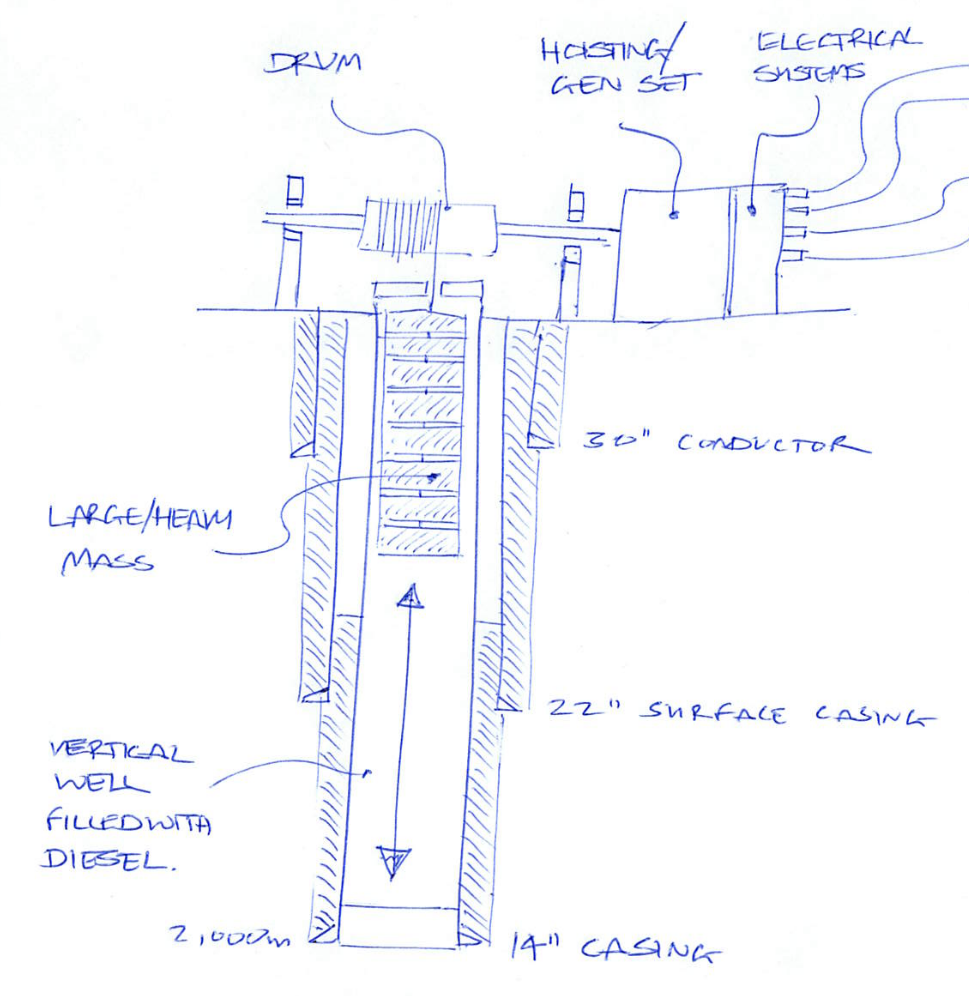 DRUM
HOISTING/
GEN SET
ELECTRICAL
SYSTEMS
30" CONDUCTOR
LARGE/HEAVY
MASS
22" SURFACE CASING
VERTICAL
WELL
FILLED WITH
DIESEL.
2,000m
14" CASING